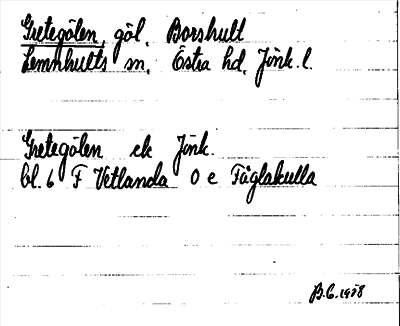 Gretegölen, göl, Borshult
Lemnhults sn, Östra hd, Jönk. l.
Gretegölen ek Jönk.
bl. 6 F Vetlanda O e Fåglakulla
B.G. 1978